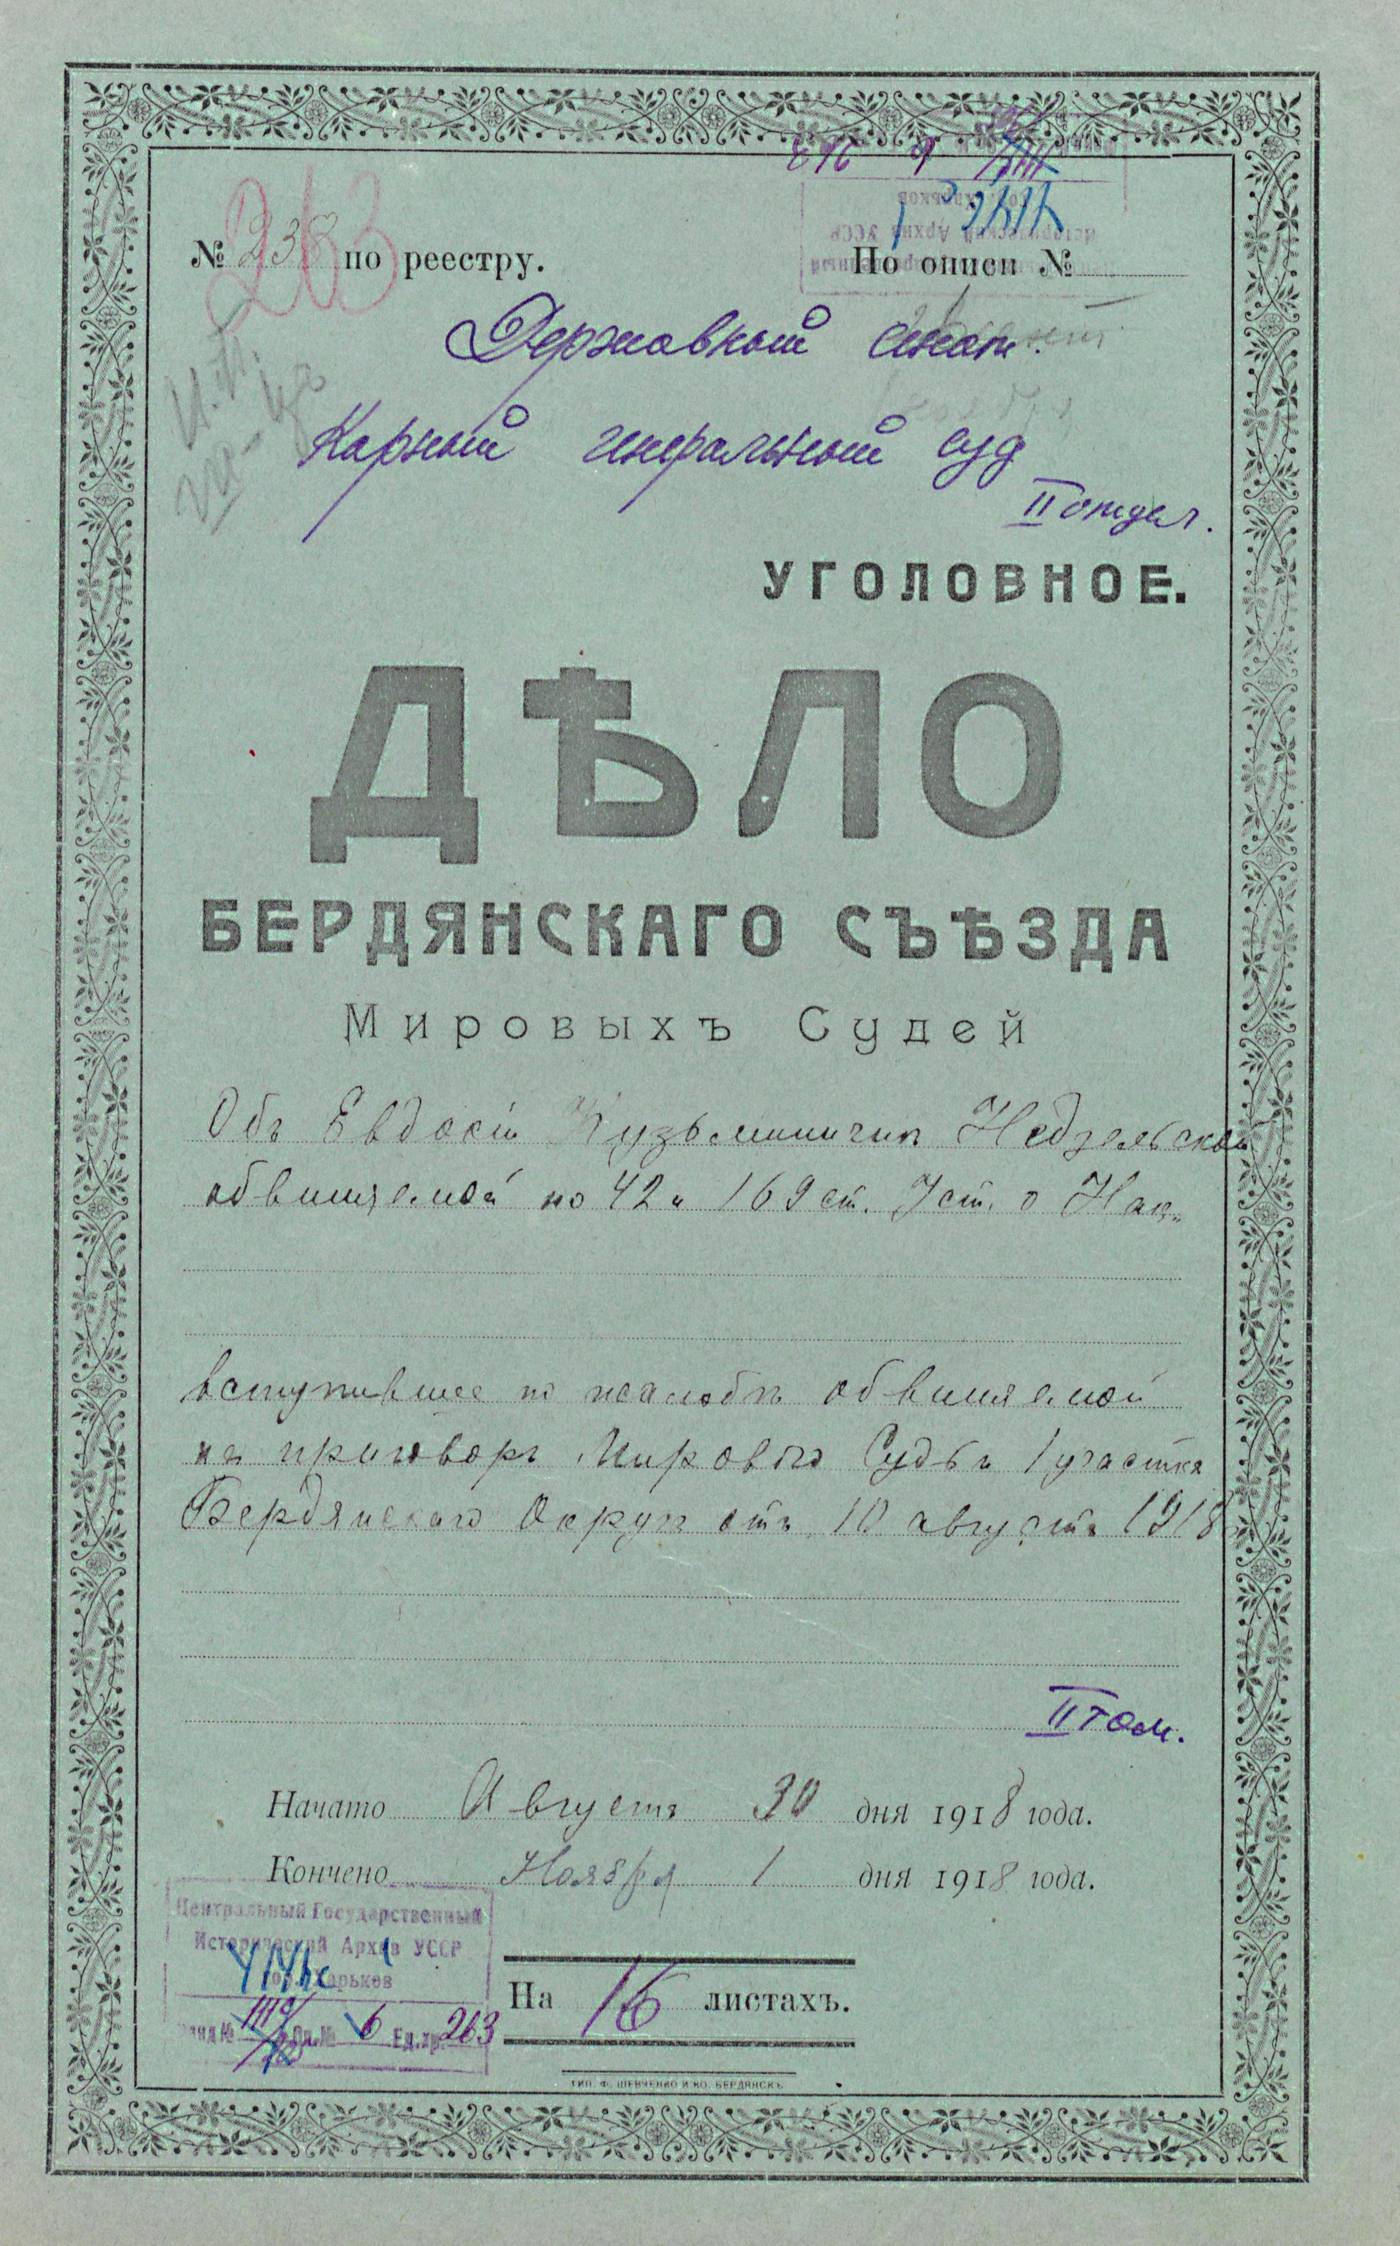 № 238 по реестру.
263
По описи №
Державный сенат.
Карный генеральный суд
II отдел.
УГОЛОВНОЕ.
ДѢЛО
БЕРДЯНСКАГО СЪѢЗДА
Мировыхъ Судей
Объ Евдокіи Кузьминичнѣ Недзельской
обвиняемой по 42 и 169 ст. Уст. о Нак.
вступившее по жалобѣ обвиняемой
на приговоръ Мирового Судьи 1 участка
Бердянскаго Округа отъ 10 августа 1918
II том.
Начато Августа 30 дня 1918 года.
Кончено Ноября 1 дня 1918 года.
Центральный Государственный
Исторический Архив УССР
гор. Харьков
Фонд № Оп. № 6 Ед. хр. 263
На 16 листахъ.
ТИП. Ф. ШЕВЧЕНКО И КО. БЕРДЯНСКЪ